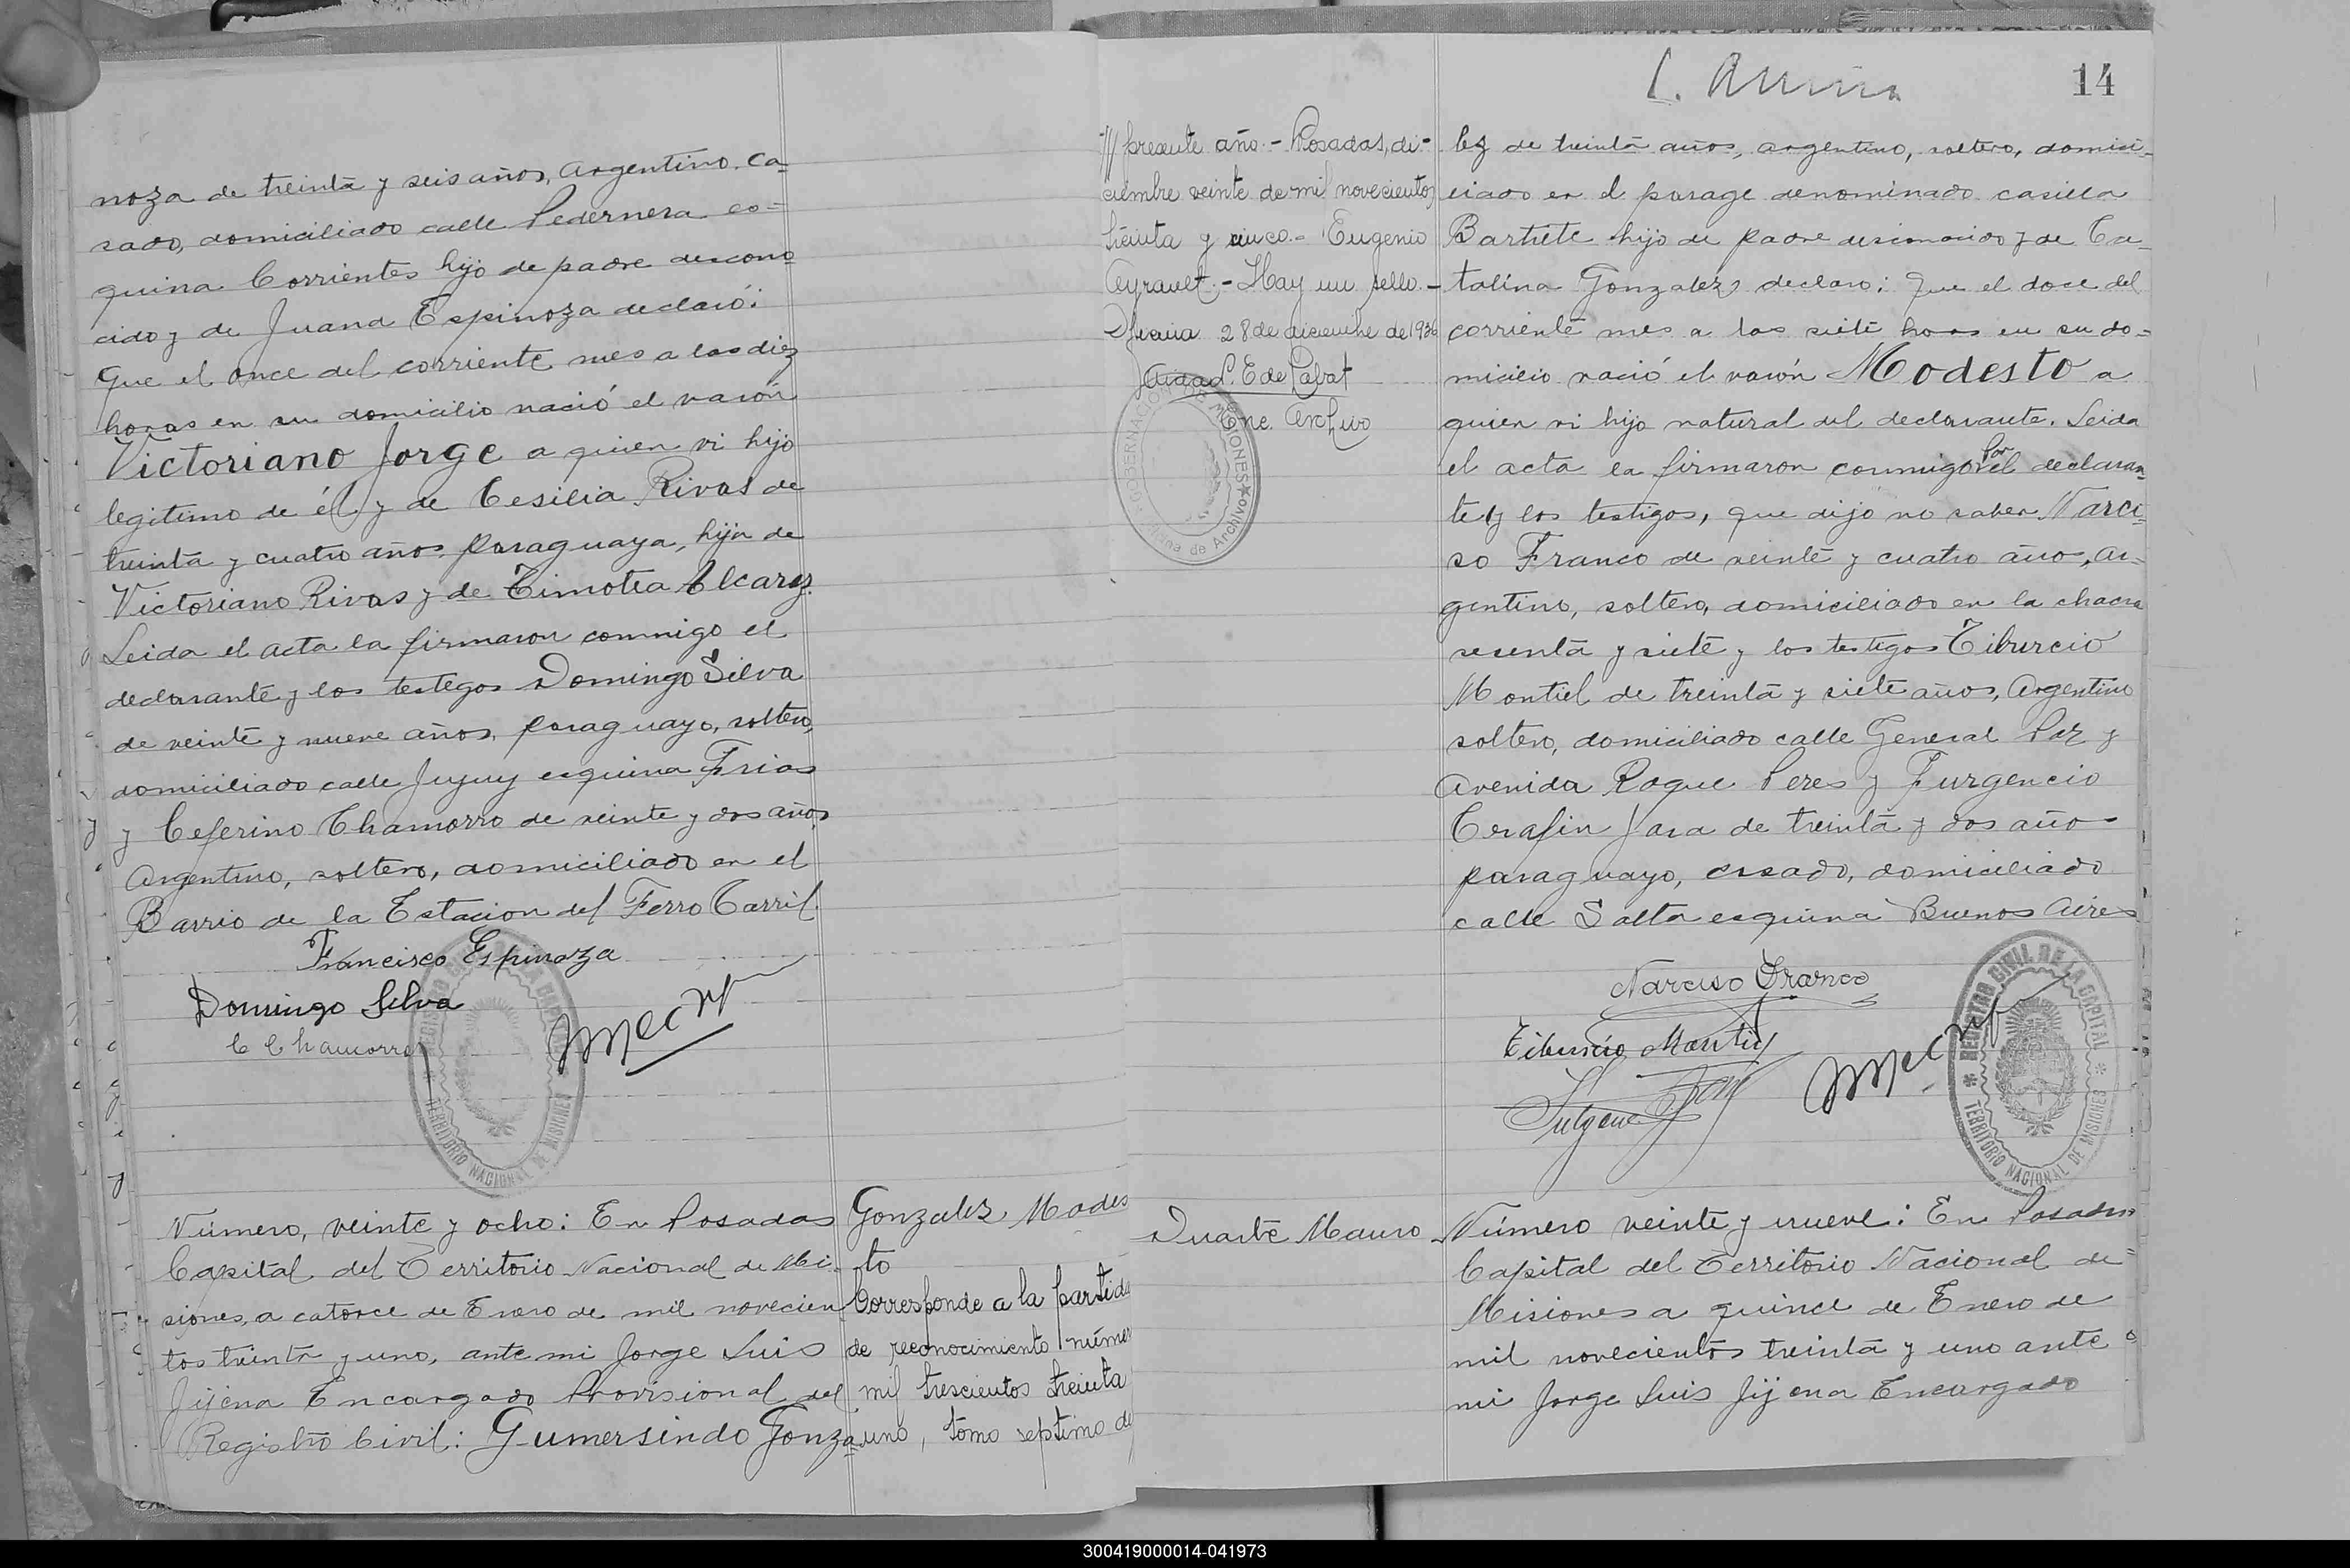 noza de treinta y seis años, Argentino, ca-
sado, domiciliado calle Pedernera es-
quina Corrientes hijo de padre descono-
cido y de Juana Espinoza declaró:
Que el once del corriente mes a las diez
horas en su domicilio nació el varón
Victoriano Jorge a quien vi hijo
legitimo de él y de Cesilia Rivas de
treinta y cuatro años paraguaya, hija de
Victoriano Rivas y de Timotea Alcarez.
Leida el acta la firmaron conmigo el
declarante y los testegos Domingo Silva
de veinte y nueve años, paraguayo, soltero,
domiciliado calle Jujuy esquina Frias
y Ceferino Chamorro de veinte y dos años,
Argentino, soltero, domiciliado en el
Barrio de la Estacion del Ferro Carril.
Francisco Espinoza
Domingo Silva
C Chamorro
REGISTRO CIVIL DE LA CAPITAL
TERRITORIO NACIONAL DE MISIONES
Número, veinte y ocho: En Posadas
Capital del Territorio Nacional de Mi-
siones, a catorce de Enero de mil novecien
tos treinta y uno, ante mi Jorge Luis
Jijena Encargado Provisional del
Registro Civil: Gumersindo Gonza-
Gonzalez, Modes
to
Corresponde a la partida
de reconocimiento númer
mil trescientos treinta
uno, tomo septimo de
14
presente año.- Posadas, di-
ciembre veinte de mil novecientos
treinta y cinco.- Eugenio
Ayrault.- Hay un sello.-
28 de diciembre de 1936
Enc. Archivo
GOBERNACION DE MISIONES
Oficina de Archivo
lez de treinta años, argentino, soltero, domici-
liado en el parage denominado casilla
Bartiete hijo de padre desconocido y de Ca-
talina Gonzalez declaro: Que el doce del
corriente mes a las siete horas en su do-
micilio nació el varón Modesto a
quien vi hijo natural del declarante. Leida
el acta la firmaron conmigo Por el declaran-
te y los testigos, que dijo no saber Narci-
so Franco de veinte y cuatro años, ar-
gentino, soltero, domiciliado en la chacra
sesenta y siete y los testigos Tiburcio
Montiel de treinta y siete años, Argentino
soltero, domiciliado calle General Paz y
Avenida Roque Peres y Furgencio
Cerafin Jara de treinta y dos años
paraguayo, casado, domiciliado
calle Salta esquina Buenos Aires
Narciso Franco
Tiburcio Montiel
REGISTRO CIVIL DE LA CAPITAL
TERRITORIO NACIONAL DE MISIONES
Duarte Mauro
Número veinte y nueve: En Posadas
Capital del Territorio Nacional de
Misiones a quince de Enero de
mil novecientos treinta y uno ante
mi Jorge Luis Jijena Encargado
300419000014-041973